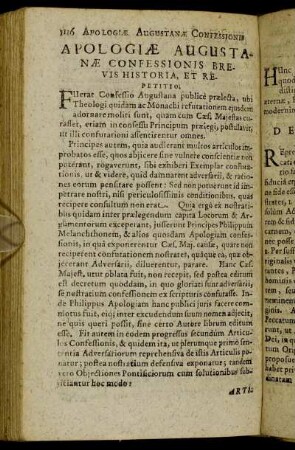 1116 APOLOGIÆ AUGUSTANÆ CONFESSIONIS
APOLOGIÆ AUGUSTA-
NÆ CONFESSIONIS BRE-
VIS HISTORIA, ET RE-
PETITIO.
Fuerat Confessio Augustana publicè prælecta, ubi
Theologi quidam ac Monachi refutationem ejusdem
adornare moliti sunt, quam cum Cæs. Majestas cu-
rasset, etiam in consessu Principum prælegi, postulavit,
ut illi confutationi assentirentur omnes.
Principes autem, quia audirent multos articulos im-
probatos esse, quos abjicere sine vulnere conscientiæ non
poterant, rogaverunt, sibi exhiberi Exemplar confuta-
tionis, ut & videre, quid damnarent adversarii, & ratio-
nes eorum pensitare possent: Sed non potuerunt id im-
petrare nostri, nisi periculosissimis conditionibus, quas
recipere consultum non erat. Quia ergò ex nostrati-
bus quidam inter prælegendum capita Locorum & Ar-
gumentorum exceperant, jusserunt Principes Philippum
Melanchthonem, & alios quosdam Apologiam confessi-
onis, in quâ exponerentur Cæs. Maj. causæ, quare non
reciperent confutationem nostrates, quáque ea, quæ ob-
jecerant Adversarii, diluerentur, parare. Hanc Cæs.
Majest. utur oblata fuit, non recepit, sed postea edi-
est decretum quoddam, in quo gloriati sunt adversarii,
se nostratium confessionem ex scripturis confutasse. In-
de Philippus Apologiam hanc publici juris facere com-
motus fuit, eíq; inter excudendum suum nomen adjecit,
ne quis queri posset, sine certo Autore librum editum
esse. Fit autem in eodem progressio secundùm Articu-
los Confessionis, & quidem ita, ut plerumque primò sen-
tentia Adversariorum reprehensiva de istis Articulis po-
natur; postea nostratium defensiva exponatur; tandem
verò Objectiones Pontificiorum cum solutionibus sub-
jiciantur hoc modo:
ARTI-